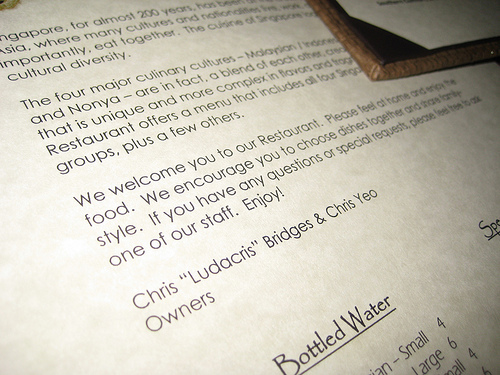 ngapore, for almost 200 years, has been
Asia, where many cultures and nationalities live, work
importantly, eat together. The cuisine of Singapore
cultural diversity.
The four major culinary cultures – Malaysian /
and Nonya – are in fact, a blend of each other,
that is unique and more complex in flavors and
Restaurant offers a menu that includes all four
groups, plus a few others.
We welcome you to our Restaurant. Please feel at home and enjoy the
food. We encourage you to choose dishes together and share family-
style. If you have any questions or special requests, please feel free to ask
one of our staff. Enjoy!
Chris "Ludacris" Bridges & Chris Yeo
Owners
Bottled Water
ian – Small 4
Large 6
mall 4